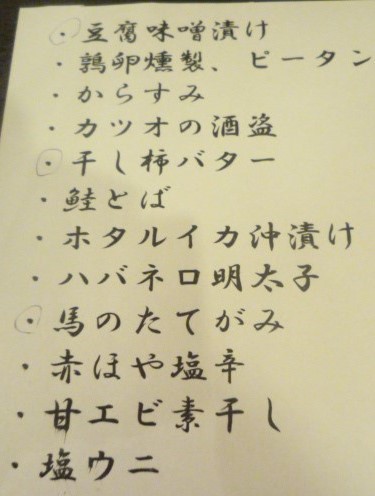 ・豆腐味噌漬け
・鶉卵燻製、ピータン
・からすみ
・カツオの酒盗
・干し柿バター
・鮭とば
・ホタルイカ沖漬け
・ハバネロ明太子
・馬のたてがみ
・赤ほや塩辛
・甘エビ素干し
・塩ウニ